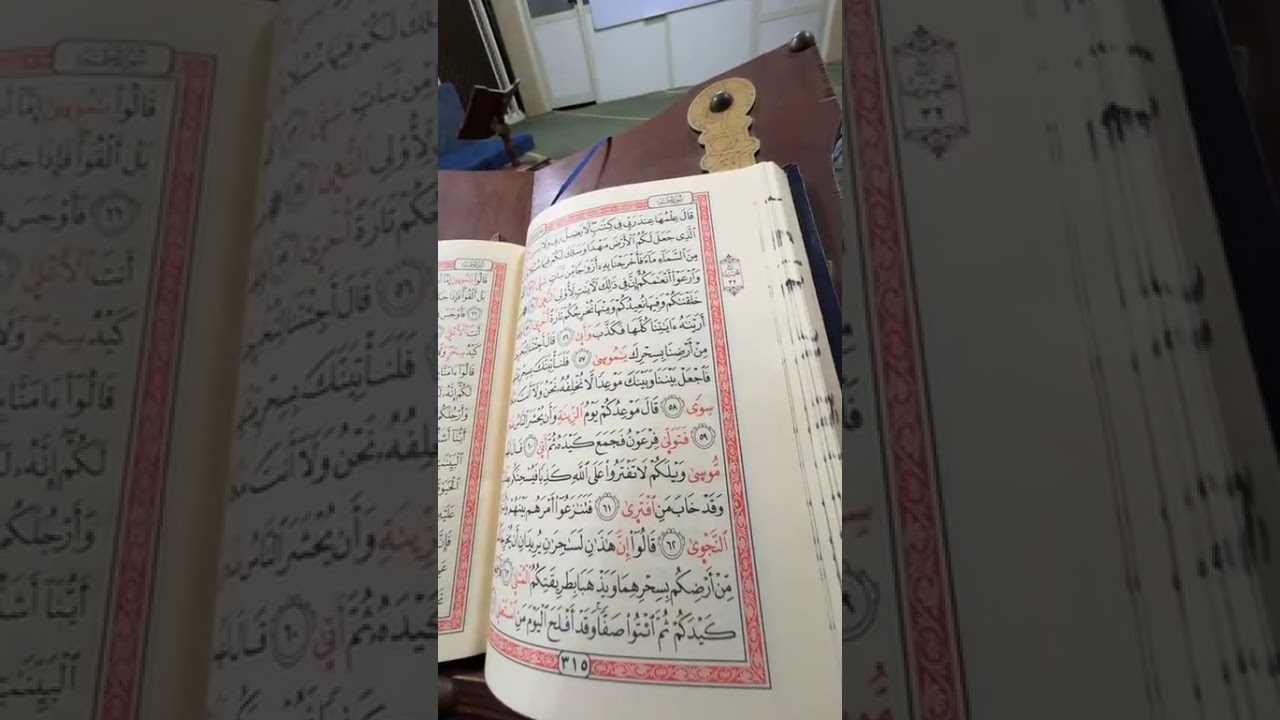 سورة طه
قَالَ عِلْمُهَا عِندَ رَبِّي فِي كِتَٰبٍ لَّا يَضِلُّ رَبِّي وَلَا
ٱلَّذِي جَعَلَ لَكُمُ ٱلْأَرْضَ مَهْدًا وَسَلَكَ لَكُمْ فِيهَا
مِنَ ٱلسَّمَآءِ مَآءً فَأَخْرَجْنَا بِهِۦٓ أَزْوَٰجًا مِّن نَّبَاتٍ شَتَّىٰ
وَٱرْعَوْا۟ أَنْعَٰمَكُمْ إِنَّ فِي ذَٰلِكَ لَأٓيَٰتٍ لِّأُو۟لِي ٱلنُّهَىٰ
خَلَقْنَٰكُمْ وَفِيهَا نُعِيدُكُمْ وَمِنْهَا نُخْرِجُكُمْ تَارَةً أُخْرَىٰ
أَرَيْنَٰهُ ءَايَٰتِنَا كُلَّهَا فَكَذَّبَ وَأَبَىٰ ٥٦ قَالَ أَجِئْتَنَا
مِنْ أَرْضِنَا بِسِحْرِكَ يَٰمُوسَىٰ ٥٧ فَلَنَأْتِيَنَّكَ بِسِحْرٍ
فَٱجْعَلْ بَيْنَنَا وَبَيْنَكَ مَوْعِدًا لَّا نُخْلِفُهُۥ نَحْنُ وَلَآ أَنتَ
سِوًى ٥٨ قَالَ مَوْعِدُكُمْ يَوْمُ ٱلزِّينَةِ وَأَن يُحْشَرَ ٱلنَّاسُ
٥٩ فَتَوَلَّىٰ فِرْعَوْنُ فَجَمَعَ كَيْدَهُۥ ثُمَّ أَتَىٰ ٦٠ قَالَ لَهُم
مُّوسَىٰ وَيْلَكُمْ لَا تَفْتَرُوا۟ عَلَى ٱللَّهِ كَذِبًا فَيُسْحِتَكُم
وَقَدْ خَابَ مَنِ ٱفْتَرَىٰ ٦١ فَتَنَٰزَعُوٓا۟ أَمْرَهُم بَيْنَهُمْ
ٱلنَّجْوَىٰ ٦٢ قَالُوٓا۟ إِنَّ هَٰذَٰنِ لَسَٰحِرَٰنِ يُرِيدَانِ أَن يُخْرِجَاكُم
مِّنْ أَرْضِكُم بِسِحْرِهِمَا وَيَذْهَبَا بِطَرِيقَتِكُمُ ٱلْمُثْلَىٰ ٦٣
كَيْدَكُمْ ثُمَّ ٱئْتُوا۟ صَفًّا وَقَدْ أَفْلَحَ ٱلْيَوْمَ مَنِ ٱسْتَعْلَىٰ
٣١٥
قَالُوا۟ يَٰمُوسَىٰٓ إِمَّآ
بَلْ أَلْقُوا۟ فَإِذَا
٦٦ فَأَوْجَسَ
أَنتَ ٱلْأَعْلَىٰ
كَيْدُ سَٰحِرٍ وَلَا
قَالُوٓا۟ ءَامَنَّا
لَكُمْ إِنَّهُۥ
وَأَرْجُلَكُم
أَيُّنَآ أَشَدُّ
ٱلْبَيِّنَٰتِ